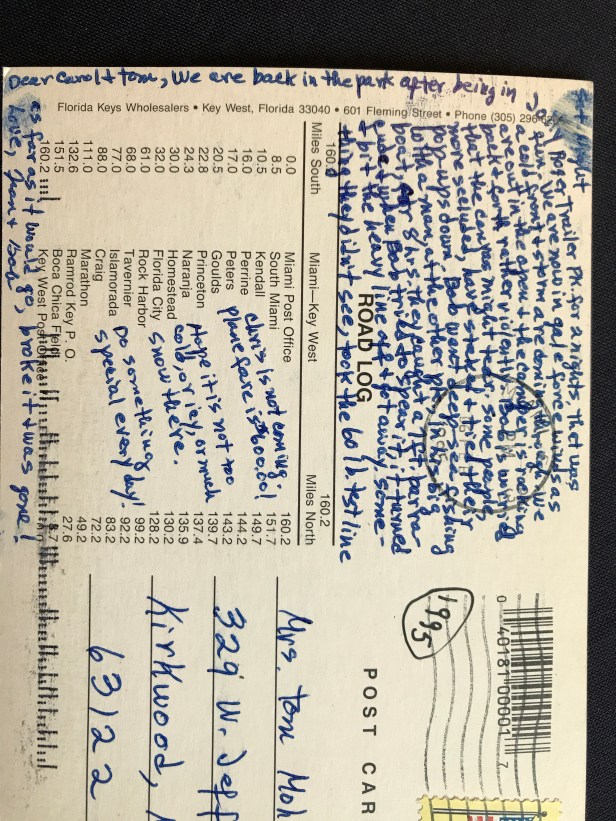 Dear Carol & Tom, We are back in the park after being in
Florida Keys Wholesalers • Key West, Florida 33040 • 601 Fleming Street • Phone (305) 296
Trailer Pk. for 2 nights, that was
fun. We are now in gale force winds as
a cold front & storm are coming through. We
are out in the open & the camper is rocking
back & forth rather violently. Bob is worried
that the canvas might tear, some people
more secluded, have staked & tied their
pop-ups down. Bob went deep sea fishing
with a man at the other park, in his big
boat, for 8 hrs. they caught a 7 ft.
when Bob tried to spear it, it turned
& bit the heavy line off & got away. Some-
thing they didn't see, took the 60 lb test line
as far as it would go, broke it & was gone!
Love, Jean & Bob
Chris is not coming,
plane fare is $600.00!
Hope it is not too
cold, or icy, or much
snow there.
Do something
special every day!
ROAD LOG
160.2 160.2
Miles South Miami—Key West Miles North
0.0 Miami Post Office 160.2
8.5 South Miami 151.7
10.5 Kendall 149.7
16.0 Perrine 144.2
17.0 Peters 143.2
20.5 Goulds 139.7
22.8 Princeton 137.4
24.3 Naranja 135.9
30.0 Homestead 130.2
32.0 Florida City 128.2
61.0 Rock Harbor 99.2
68.0 Tavernier 92.2
77.0 Islamorada 83.2
88.0 Craig 72.2
111.0 Marathon 49.2
132.6 Ramrod Key P. O. 27.6
151.5 Boca Chica Field 8.7
160.2 Key West Post Office
0 40181 00001 7
1995
POST CAR
Mrs. Tom Moh
329 W. Jeff
Kirkwood, M
63122